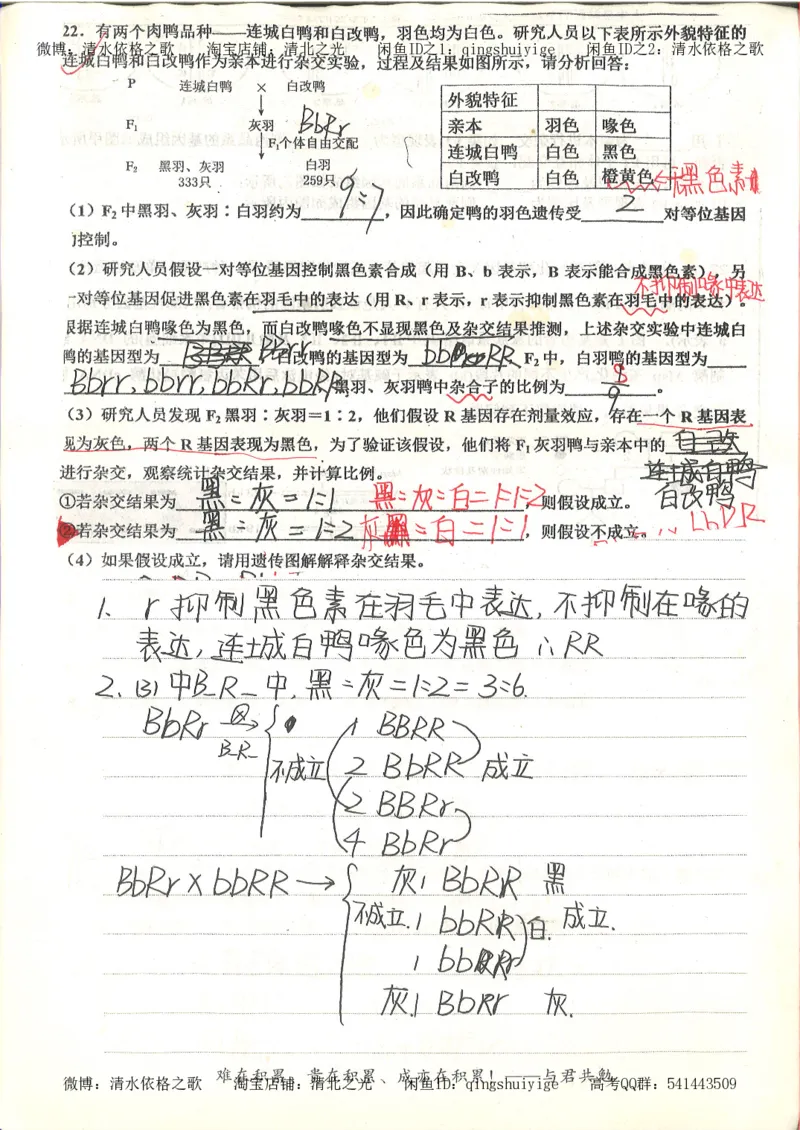 22．有两个肉鸭品种——连城白鸭和白改鸭，羽色均为白色。研究人员以下表所示外貌特征的
微博：清水依格之歌 淘宝店铺：清北之光 闲鱼ID之1：qingshuiyige 闲鱼ID之2：清水依格之歌
连城白鸭和白改鸭作为亲本进行杂交实验，过程及结果如图所示，请分析回答：
P 连城白鸭 × 白改鸭
外貌特征
F₁ 灰羽 BbRr
亲本 羽色 喙色
F₁个体自由交配
连城白鸭 白色 黑色
F₂ 黑羽、灰羽 白羽
白改鸭 白色 橙黄色 ←无黑色素
333只 259只
（1）F₂中黑羽、灰羽：白羽约为 9：7 ，因此确定鸭的羽色遗传受 2 对等位基因
控制。
（2）研究人员假设一对等位基因控制黑色素合成（用 B、b 表示，B 表示能合成黑色素），另
不抑制喙中表达
一对等位基因促进黑色素在羽毛中的表达（用 R、r 表示，r 表示抑制黑色素在羽毛中的表达）。
根据连城白鸭喙色为黑色，而白改鸭喙色不显现黑色及杂交结果推测，上述杂交实验中连城白
鸭的基因型为 BBrr ，白改鸭的基因型为 bbRR F₂中，白羽鸭的基因型为
Bbrr，bbrr，bbRr，bbRR，黑羽、灰羽鸭中杂合子的比例为 8/9 。
（3）研究人员发现 F₂黑羽：灰羽＝1：2，他们假设 R 基因存在剂量效应，存在一个 R 基因表
现为灰色，两个 R 基因表现为黑色，为了验证该假设，他们将 F₁灰羽鸭与亲本中的 白改
进行杂交，观察统计杂交结果，并计算比例。
连城白鸭
白改鸭
①若杂交结果为 黑：灰＝1：1 黑：灰：白＝1：1：2 ，则假设成立。
②若杂交结果为 黑：灰＝1：2 灰：白＝1：1 ，则假设不成立。
（4）如果假设成立，请用遗传图解解释杂交结果。
1. r抑制黑色素在羽毛中表达，不抑制在喙的
表达，连城白鸭喙色为黑色 ∴RR
2. (3)中B_R_中，黑：灰＝1：2＝3：6.
BbRr ⊗→ 1 BBRR
B_R_
不成立 2 BbRR 成立
2 BBRr
4 BbRr
BbRr×bbRR → 灰1 BbRR 黑
不成立.1 bbRR 白. 成立.
1 bbRr
灰.1 BbRr 灰.
难在积累、贵在积累、成亦在积累！——与君共勉
微博：清水依格之歌 淘宝店铺：清北之光 闲鱼ID：qingshuiyige 高考QQ群：541443509